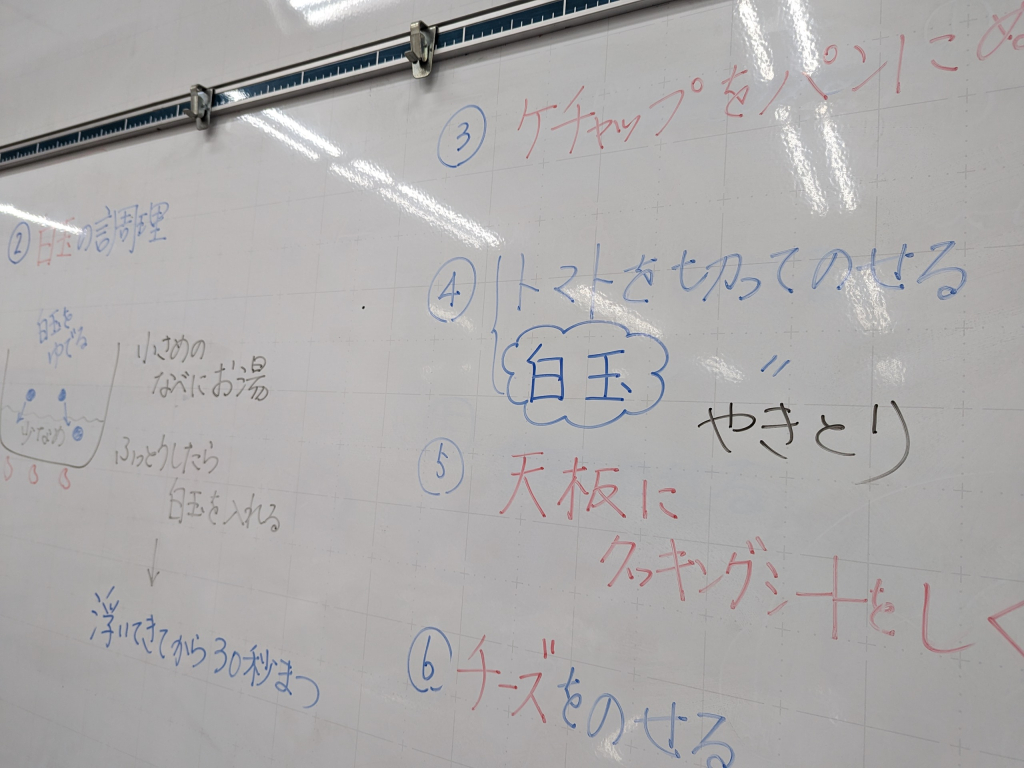 ② 白玉の調理
白玉を
ゆでる
小さめの
なべにお湯
ふっとうしたら
白玉を入れる
↓
浮いてきてから30秒まつ
③ ケチャップをパンに
④ トマトを切ってのせる
白玉 〃
やきとり
⑤ 天板に
クッキングシートをしく
⑥ チーズをのせる